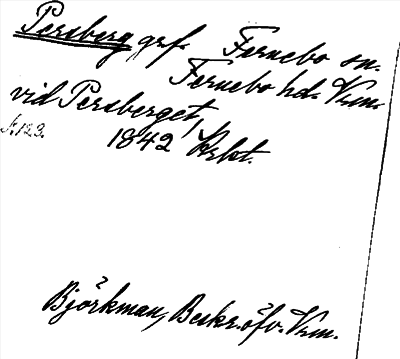 Persberg grf. Fernebo sn.
Fernebo hd. Vrm.
vid Persberget,
1842 Krbt.
Björkman, Beskr. öfv. Vrm.